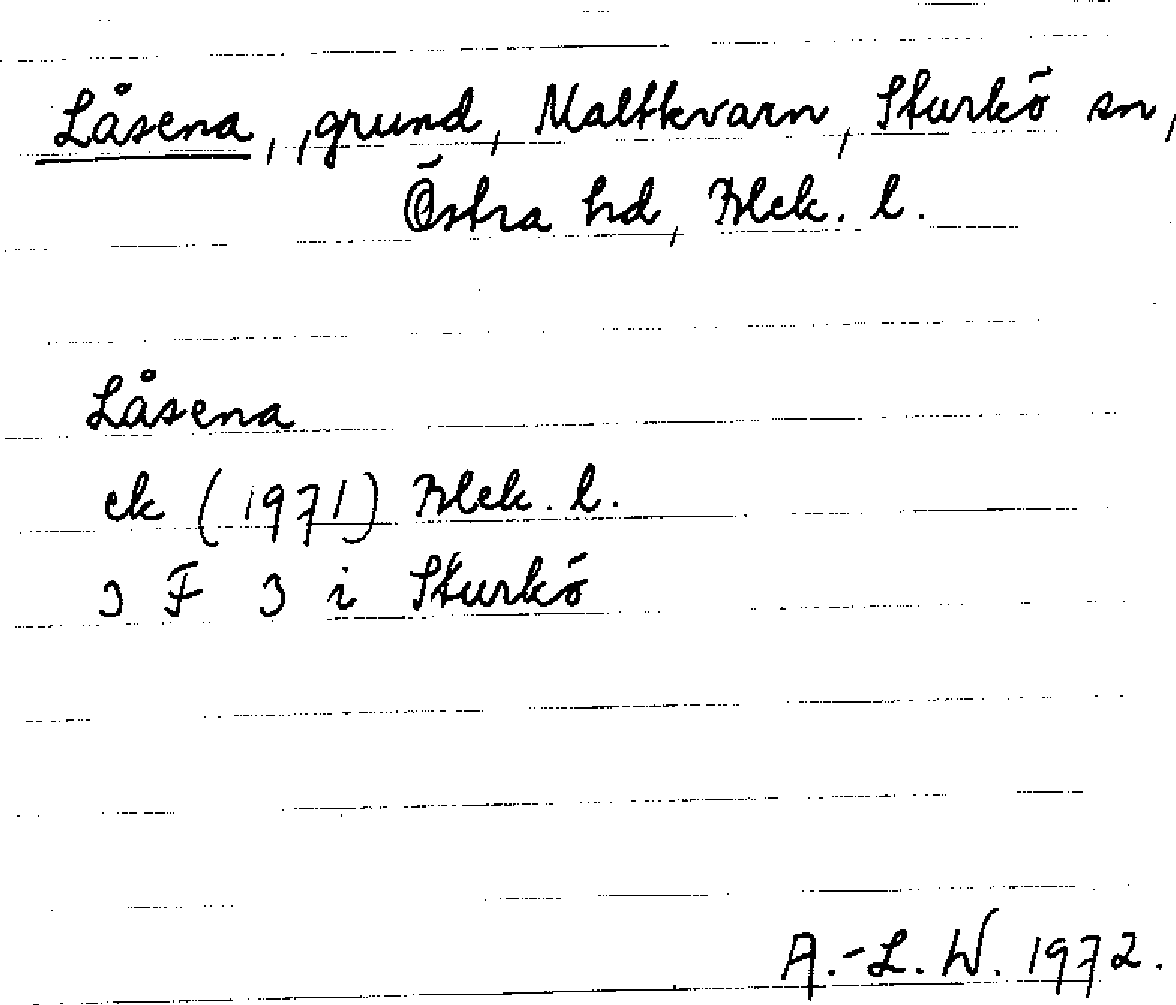 Låsena, grund, Maltkvarn, Sturkö sn,
Östra hd, Blek. l.
Låsena
ek (1971) Blek. l.
3 F 3 i Sturkö
A.-L. W. 1972.